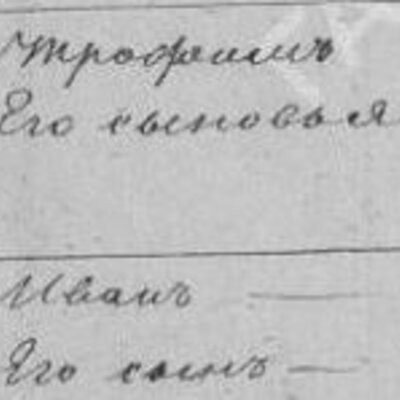 Трофимъ
Его сыновья
Иванъ —
Его сынъ —